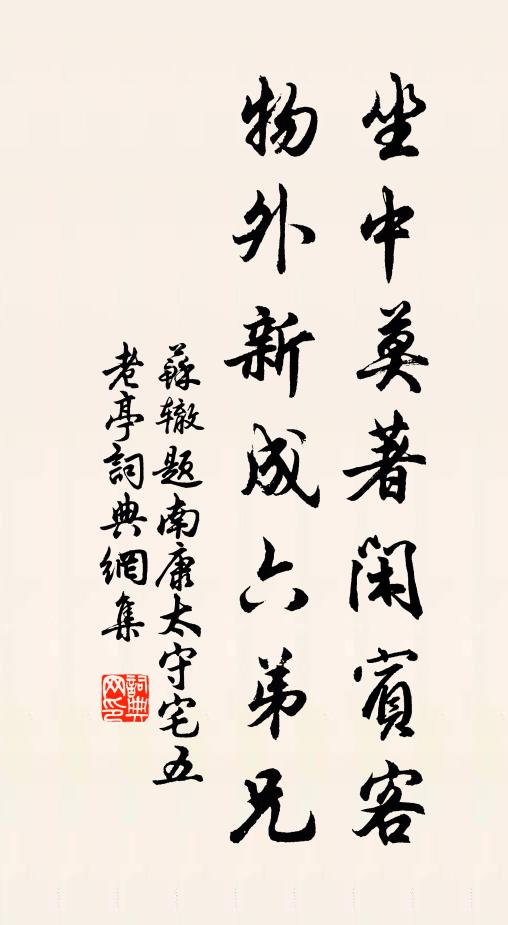 坐中莫著閑賓客
物外新成六弟兄
蘇辙题南康太守宅五
老亭詞典網集
詞典网印